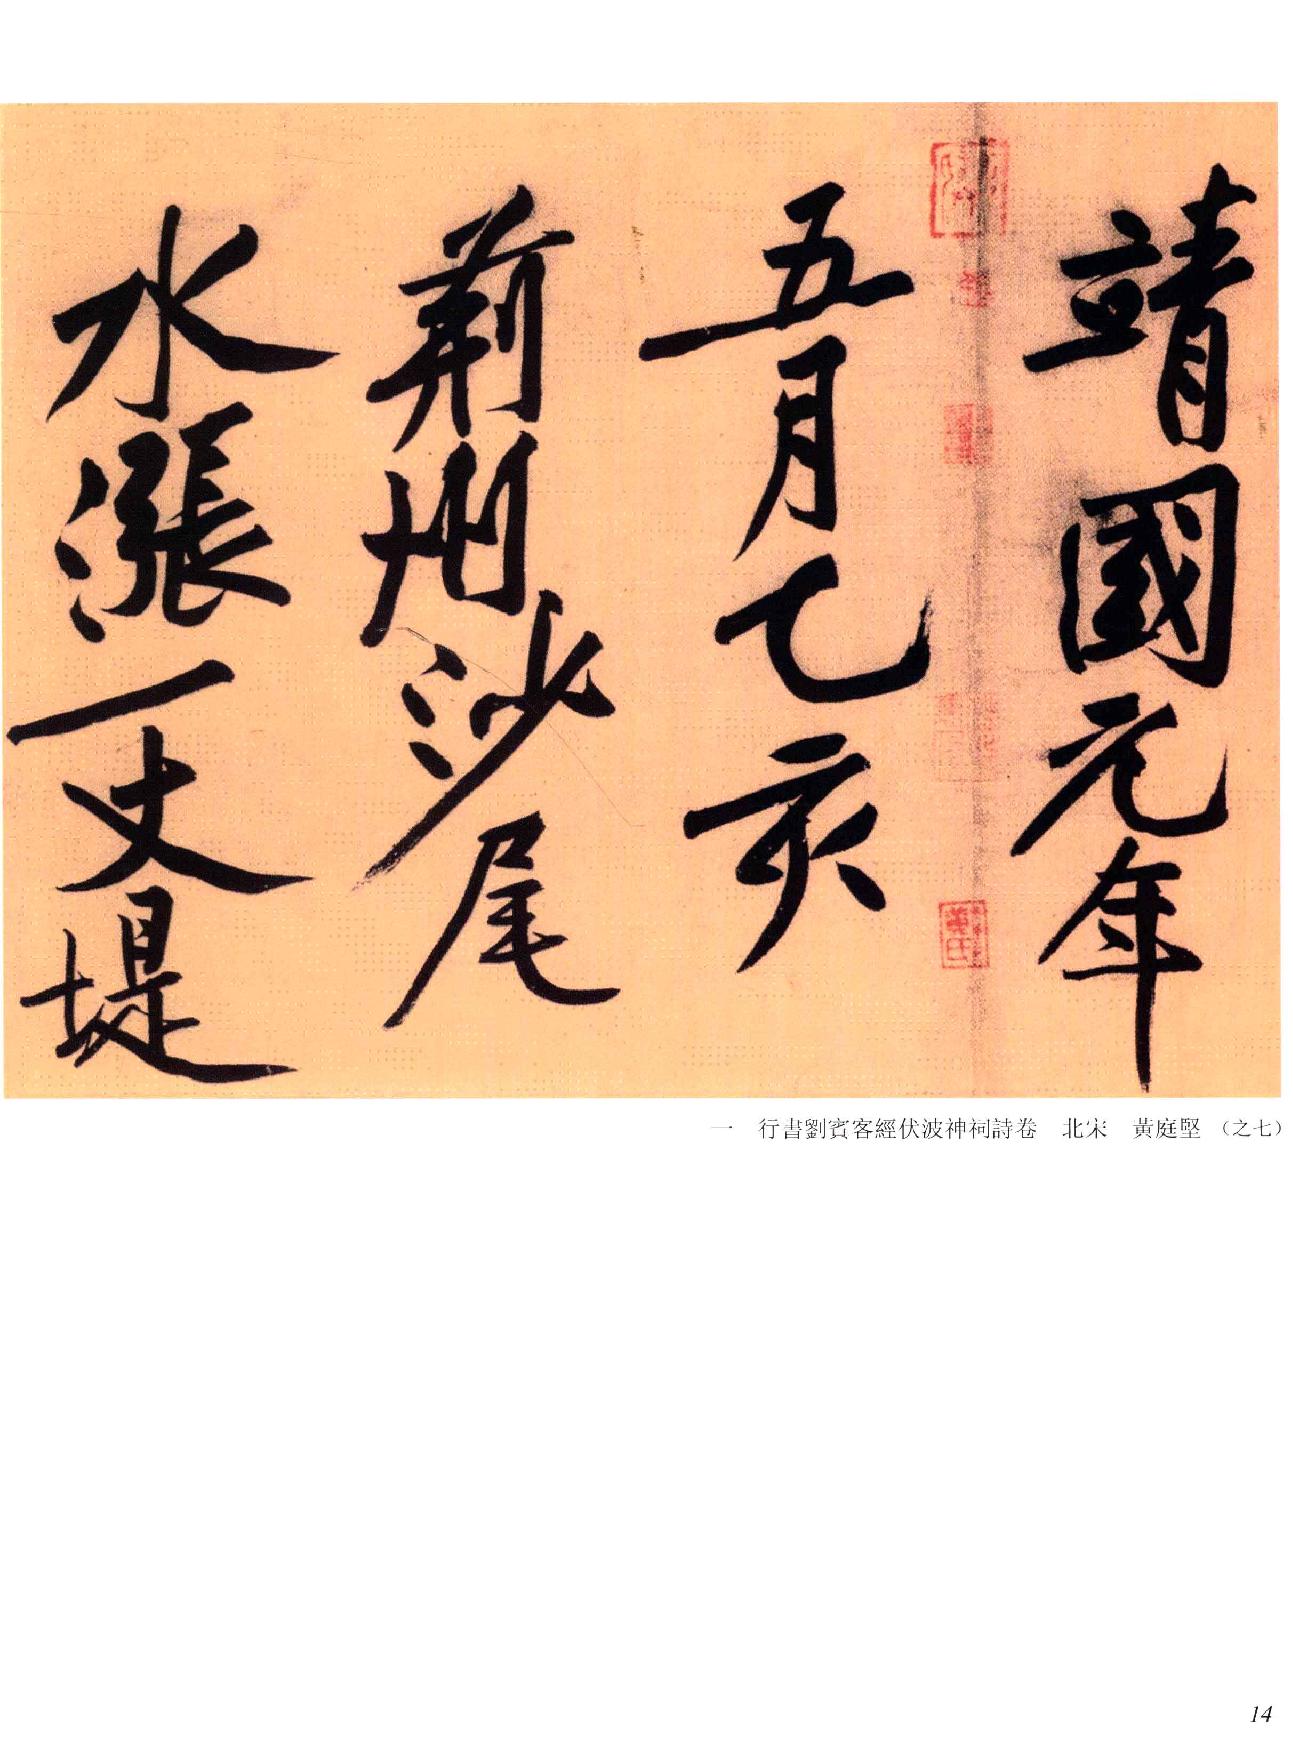 靖國元年
五月乙亥
荊州沙尾
水漲一丈堤
一 行書劉賓客經伏波神祠詩卷 北宋 黃庭堅 （之七）
14